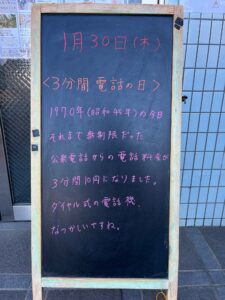 1月30日(木)
<3分間電話の日>
1970年(昭和45年)の今日
それまで無制限だった
公衆電話からの電話料金が
3分間10円になりました。
ダイヤル式の電話機、
なつかしいですね。